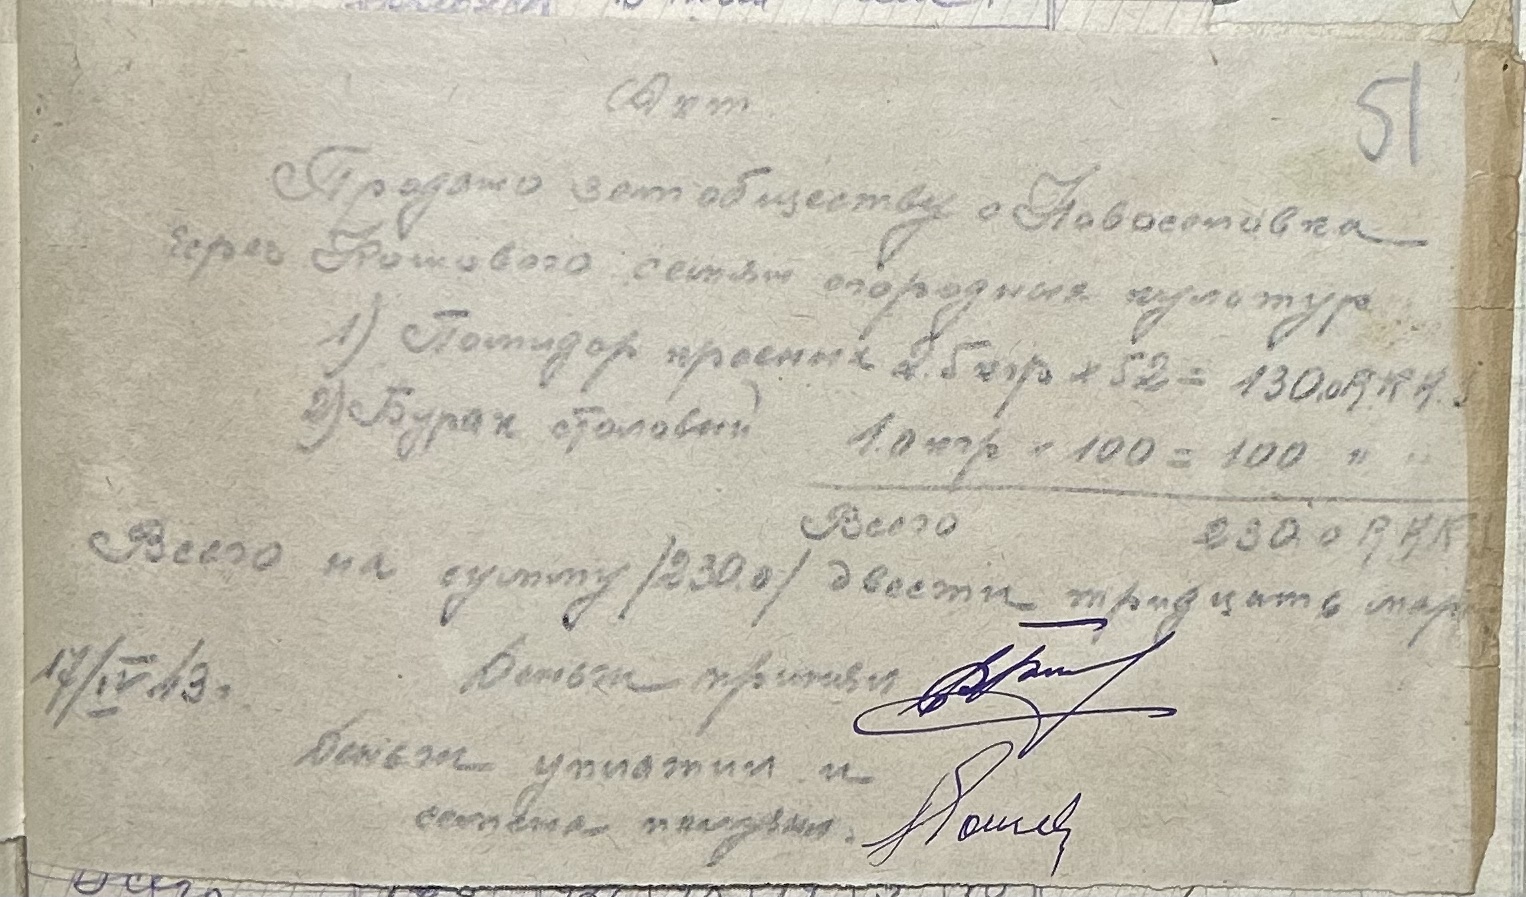 51
Акт
Продано земобществу с Новоселовка
через Кошового семян огородных культур
1) Помидор красных 2.5 кгр х 52 = 130,0 RKK.S
2) Бурак столовый 1.0 кгр х 100 = 100 " "
Всего 230.0 RKK.
Всего на сумму /230.0/ двести тридцать мар
17/IV.43г. Деньги принял
Деньги уплатил и
семена получил.